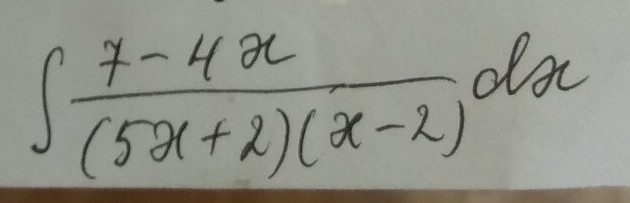 ∫ (7-4x)/((5x+2)(x-2)) dx